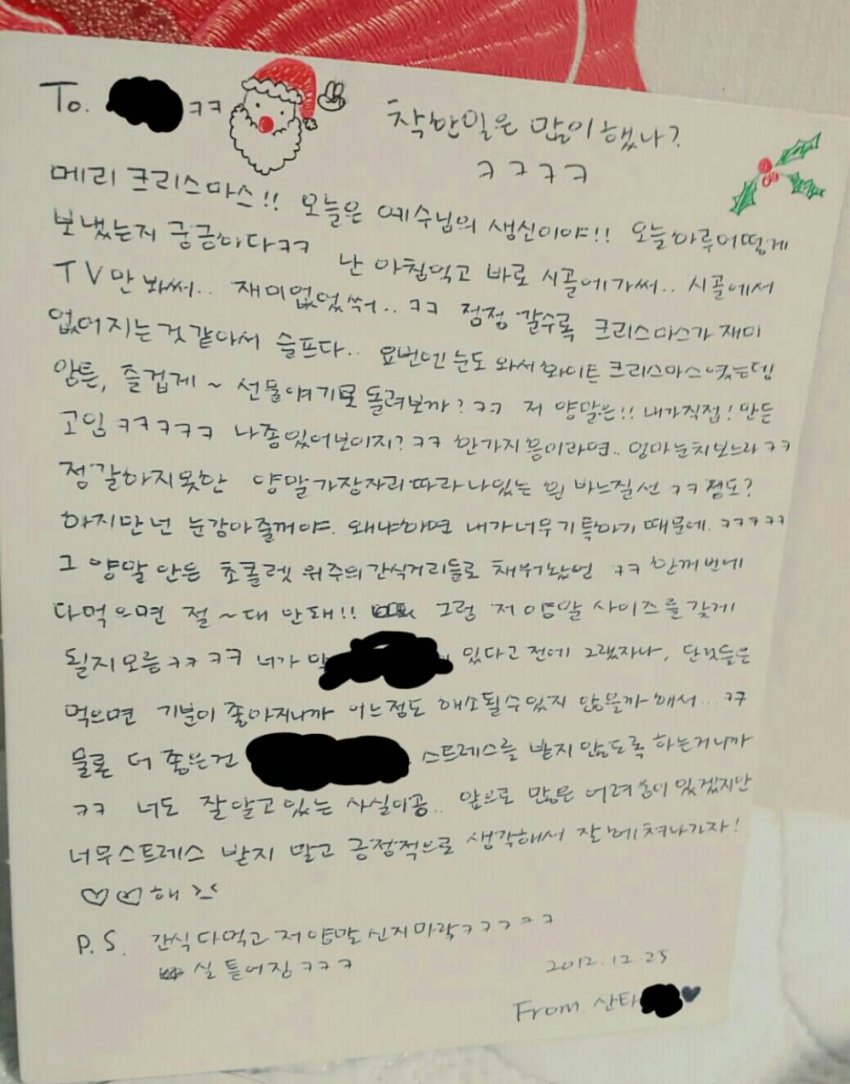 To. ㅋㅋ
착한일은 많이 했나?
ㅋㅋㅋㅋ
메리 크리스마스!! 오늘은 예수님의 생신이야!! 오늘하루어떻게
보냈는지 궁금하다ㅋㅋ 난 아침먹고 바로 시골에가써.. 시골에서
TV만 봐써.. 재미없었쒀.. ㅋㅋ 점정 갈수록 크리스마스가 재미
없어지는것같아서 슬프다.. 요번엔눈도 와서화이트크리스마스였는뎀
암튼, 즐겁게~ 선물얘기로 돌려보까?ㅋㅋ 저 양말은!! 내가직접!만든
고임ㅋㅋㅋㅋㅋ 나좀있어보이지?ㅋㅋ 한가지흠이라면.. 엄마눈치보느라ㅋㅋ
정갈하지못한 양말가장자리따라나있는 흰 바느질선ㅋㅋ정도?
하지만넌 눈감아줄꺼야. 왜냐하면 내가너무기특하기 때문에.ㅋㅋㅋㅋㅋ
그 양말 안든 초콜렛 위주의간식거리들로 채워놨썬 ㅋㅋ 한꺼번에
다먹으면 절~대 안돼!! 그럼 저양말 사이즈를갖게
될지모름ㅋㅋㅋㅋ 너가 막 있다고 전에 그랬자나, 단것들은
먹으면 기분이 좋아지니까 어느정도 해소될수있지 않을까해서...ㅋㅋ
물론 더 좋은건 스트레스를 받지 않도록 하는거니까
ㅋㅋ 너도 잘알고있는 사실이공.. 앞으로 많은 어려움이 있겠지만
너무스트레스 받지 말고 긍정적으로 생각해서 잘헤쳐나가자!
♡♡해
P.S. 간식다먹고 저양말신지마락ㅋㅋㅋㅋㅋ
실 튿어짐ㅋㅋㅋ
2012.12.25
From. 산타 ♥